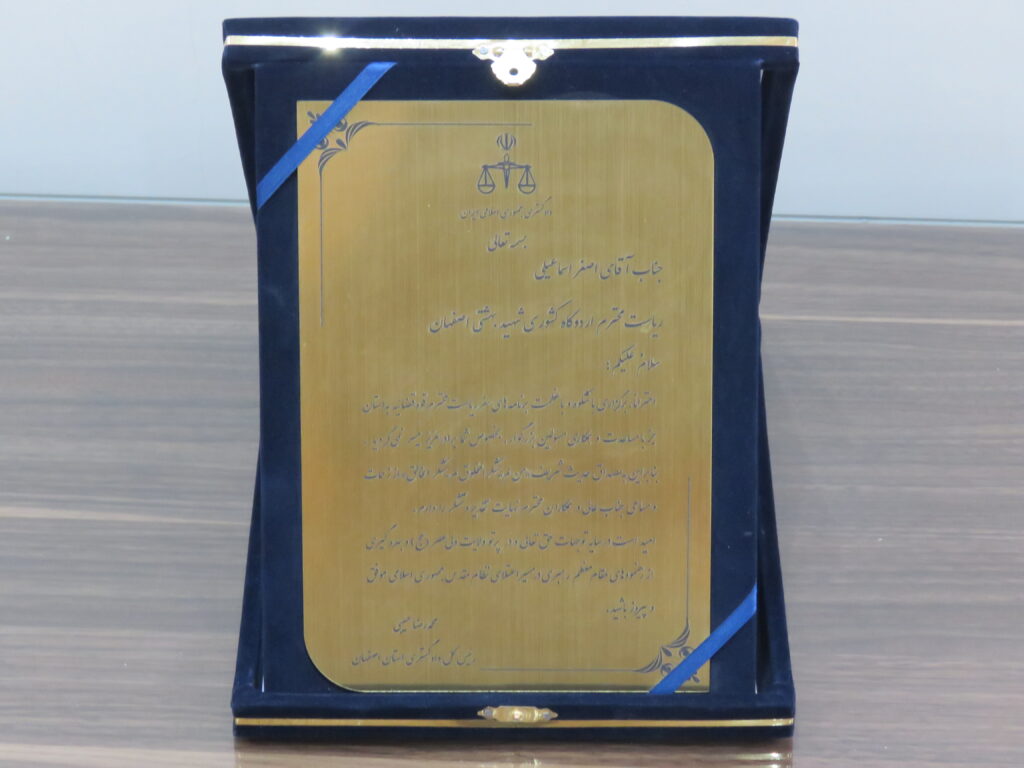 دادگستری جمهوری اسلامی ایران
بسمه تعالی
جناب آقای اصغر اسماعیلی
ریاست محترم اردوگاه کشوری شهید بهشتی اصفهان
سلام علیکم :
احتراماً، برگزاری باشکوه و با عظمت برنامه های سفر ریاست محترم قوه قضائیه به استان
جز با مساعدت و همکاری مسئولین بزرگوار، بخصوص شما برادر عزیز میسر نمی گردید.
بنابراین به مصداق حدیث شریف «من لم یشکر المخلوق لم یشکر الخالق»، از زحمات
و مساعی جناب عالی و همکاران محترم نهایت تقدیر و تشکر را دارم.
امید است در سایه توجهات حق تعالی و در پرتو ولایت ولی عصر (عج) و بهره گیری
از رهنمودهای مقام معظم رهبری در مسیر اعتلای نظام مقدس جمهوری اسلامی موفق
و پیروز باشید.
محمدرضا حبیبی
رئیس کل دادگستری استان اصفهان